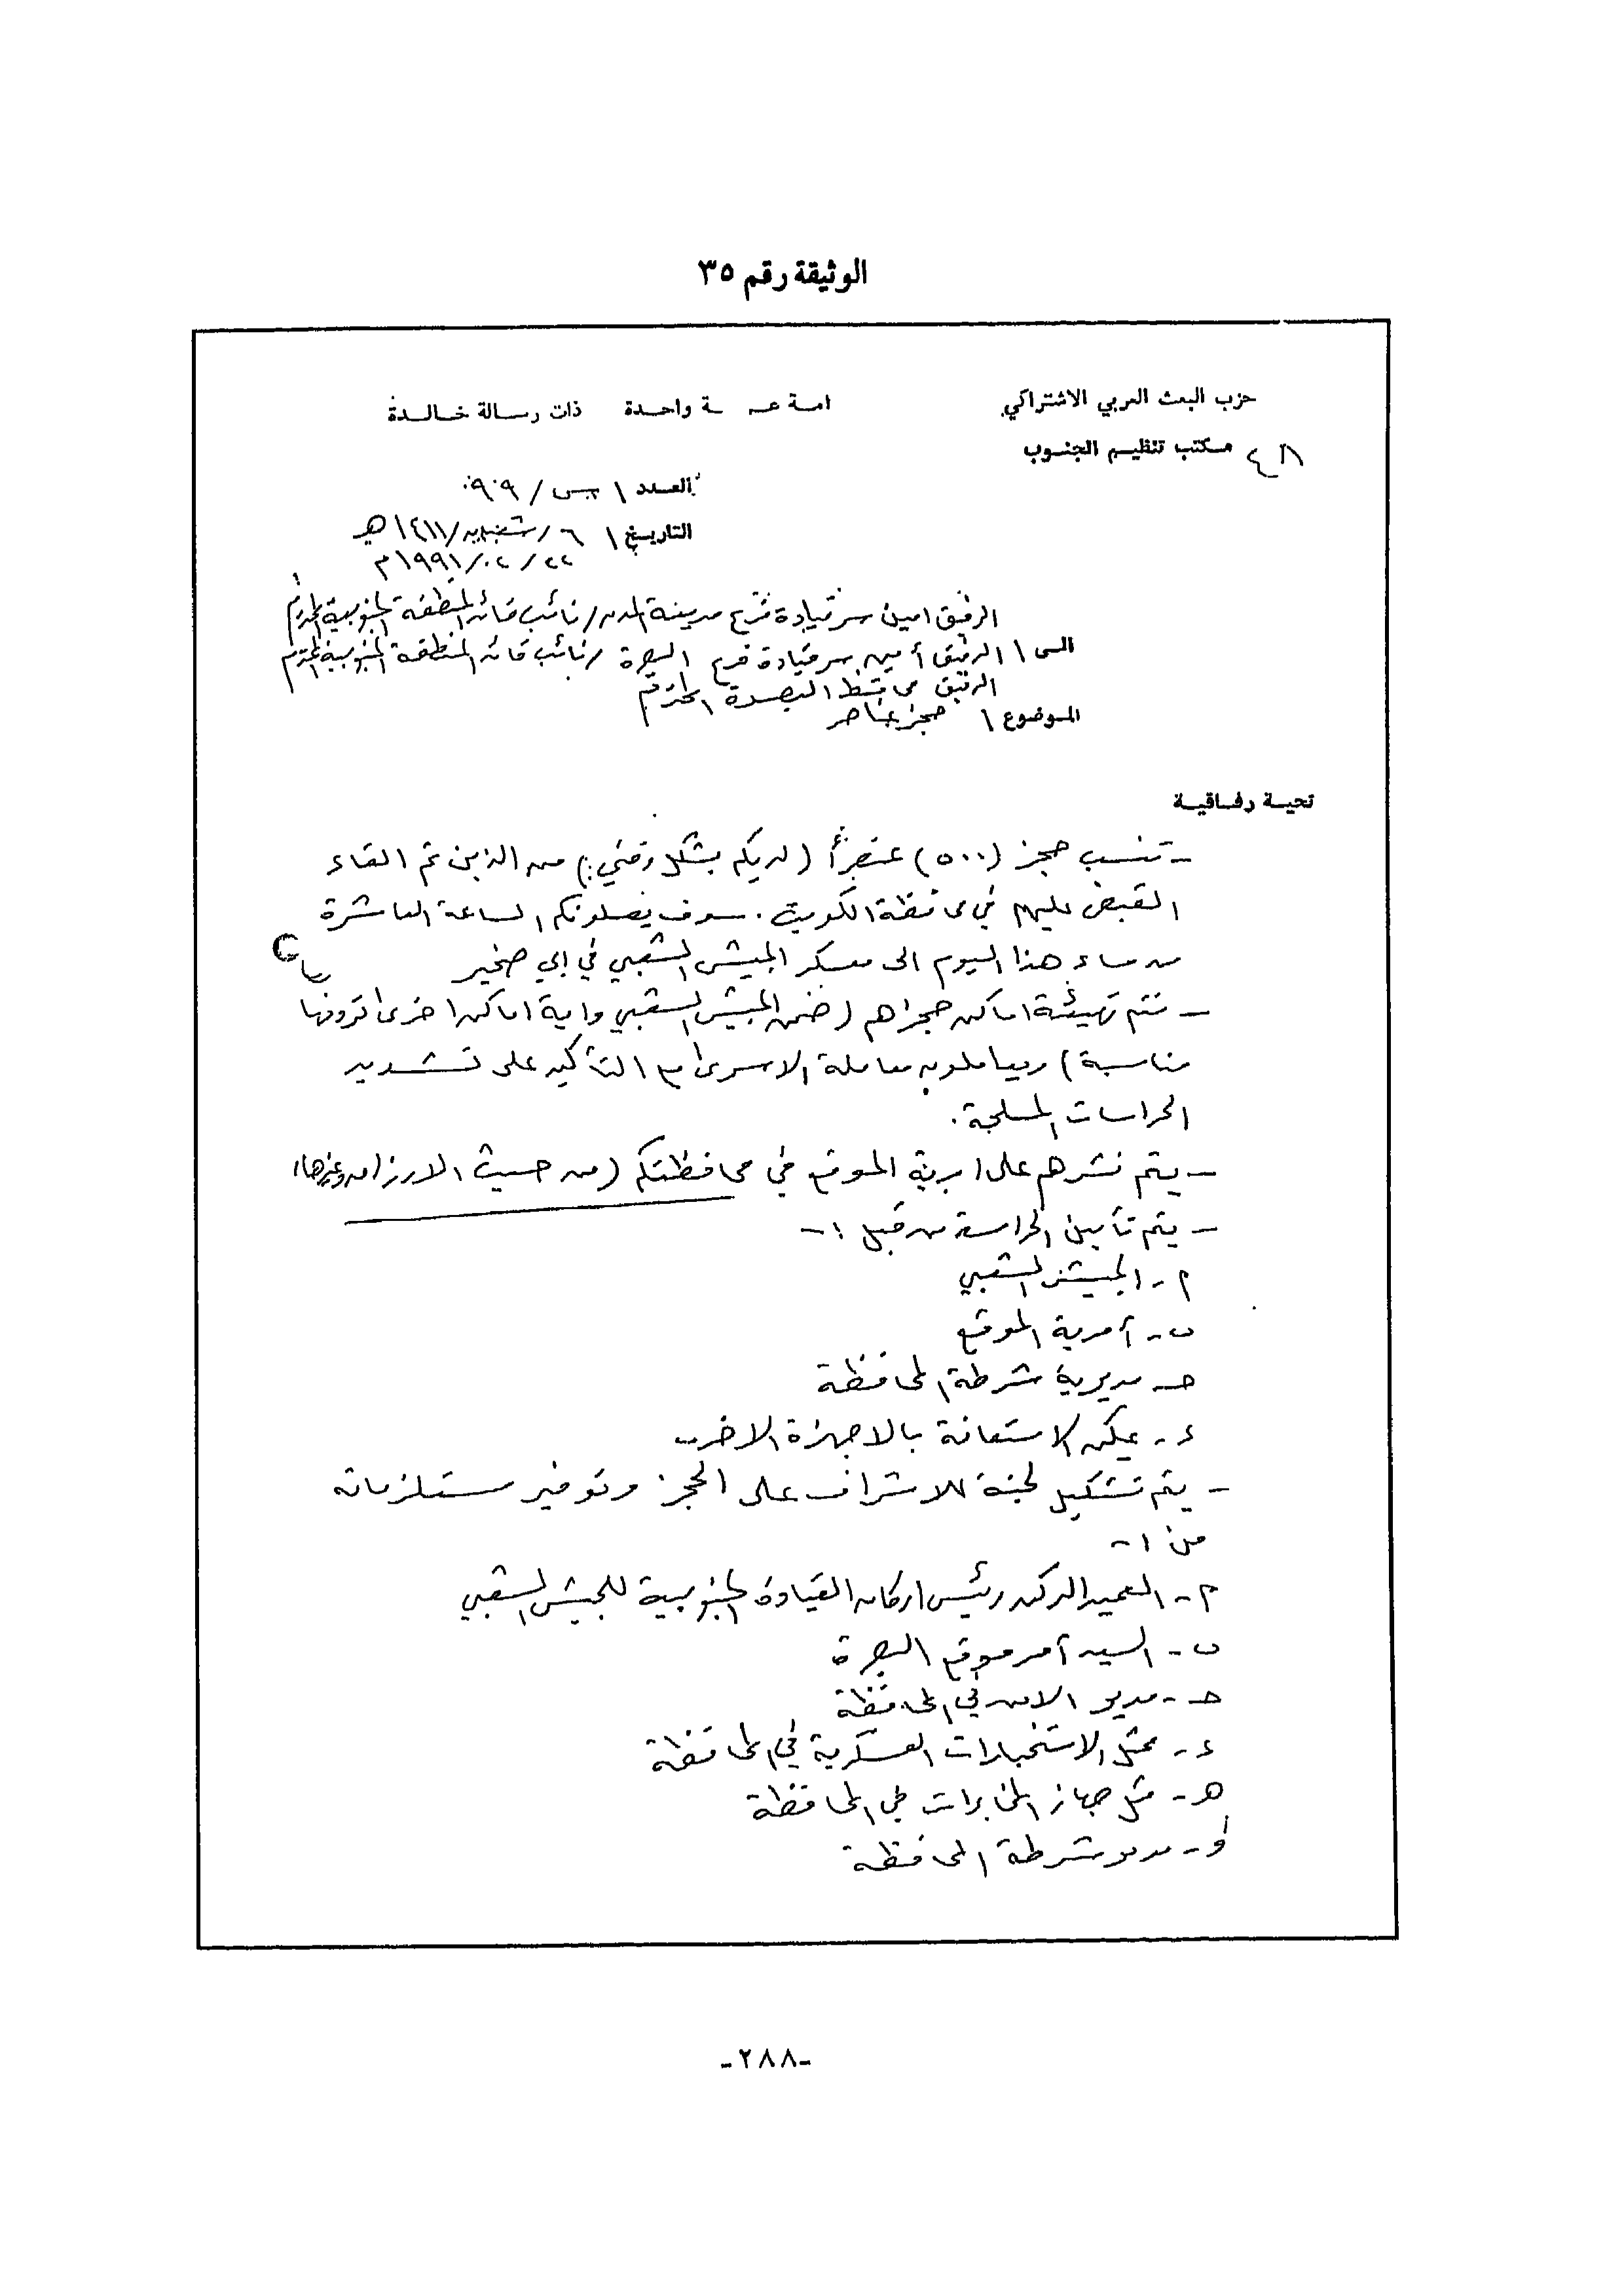 الوثيقة رقم ٣٥
حزب البعث العربي الاشتراكي
امة عـ ـة واحدة ذات رسالة خالدة
مكتب تنظيم الجنوب
العدد \ س / ٩٠٩
التاريخ \ ٦ / شعبان / ١٤١١ هـ
٢٢ / ٠٢ / ١٩٩١ م
الرفيق امين سر قيادة فرع مدينة المدن / نائب قائد المنطقة الجنوبية المحترم
الى \ الرفيق أمين سر قيادة فرع البصرة / نائب قائد المنطقة الجنوبية المحترم
الرفيق محافظ البصرة المحترم
الموضوع \ حجز عناصر
تحية رفاقية
- تنسب حجز (٥٠٠) عنصراً (لديكم بشكل وقتي) من الذين تم القاء
القبض عليهم في محافظة الكويت . سوف يصلونكم الساعة العاشرة
من مساء هذا اليوم الى معسكر الجيش الشعبي في ابي صخير
- تتم تهيئة اماكن حجزهم (ضمن الجيش الشعبي واية اماكن اخرى ترونها
مناسبة) ويعاملون معاملة الاسرى مع التأكيد على تشديد
الحراسات المسلحة .
- يتم نشرهم على امرية الموقع في محافظتكم (من حيث الارزاق وغيرها)
- يتم تأمين الحراسة من قبل :-
أ - الجيش الشعبي
ب - آمرية الموقع
جـ - مديرية شرطة المحافظة
د - يمكن الاستعانة بالاجهزة الاخرى
- يتم تشكيل لجنة للاشراف على الحجز وتوفير مستلزماته
من :-
أ - العميد الركن رئيس اركان القيادة الجنوبية للجيش الشعبي
ب - السيد آمر موقع البصرة
جـ - مدير الامن في المحافظة
د - ممثل الاستخبارات العسكرية في المحافظة
هـ - ممثل جهاز المخابرات في المحافظة
و - مدير شرطة المحافظة
-٢٨٨-